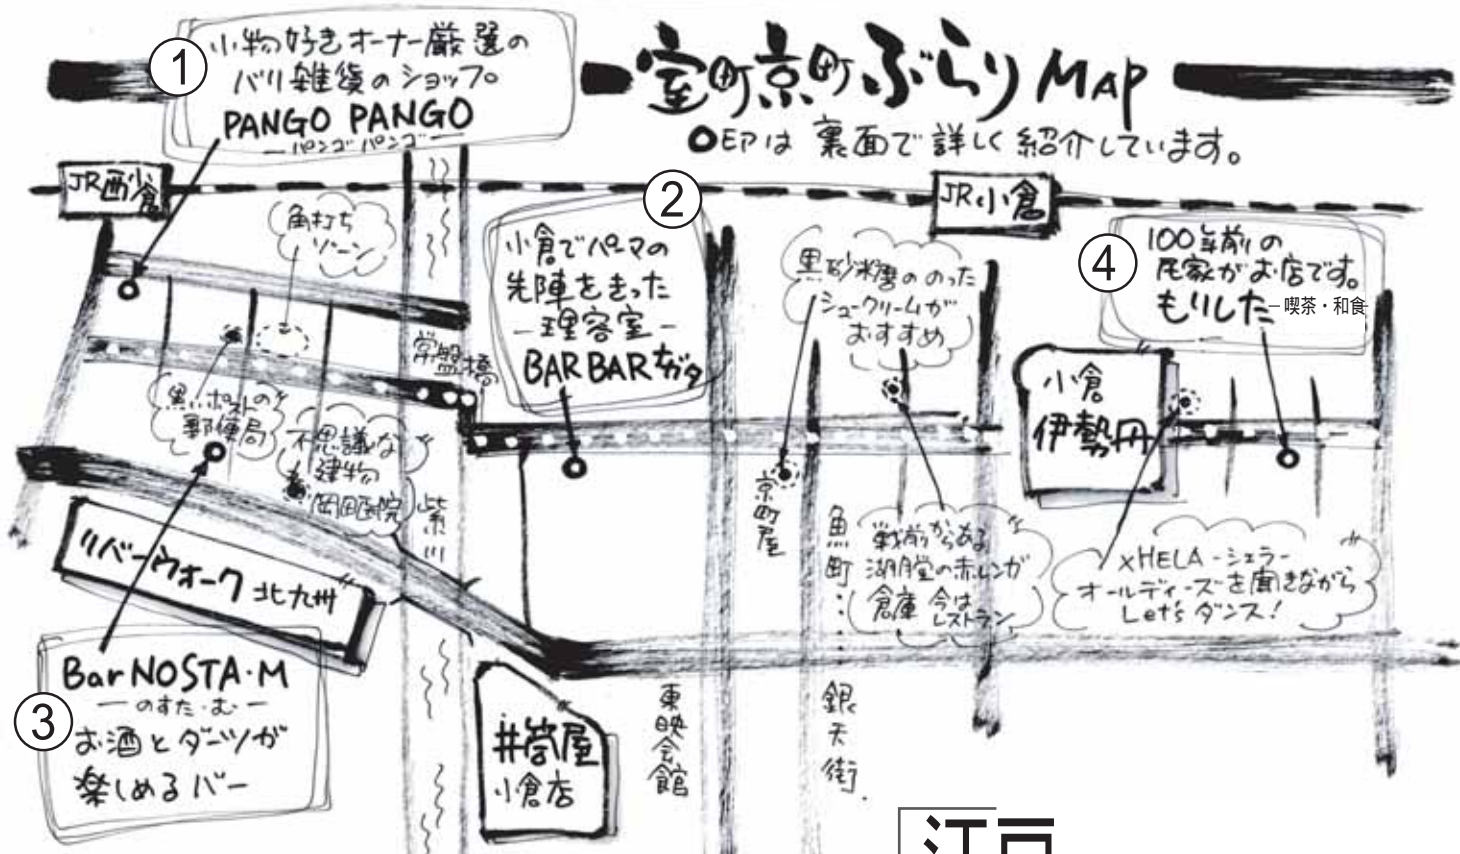 室町京町ぶらりMAP
○印は裏面で詳しく紹介しています。
①
小物好きオーナー厳選の
バリ雑貨のショップ。
PANGO PANGO
ーパンゴパンゴー
JR西小倉
角打ち
ゾーン
②
小倉でパーマの
先陣をきった
ー理容室ー
BARBARオガタ
JR小倉
黒砂糖ののった
シュークリームが
おすすめ
④
100年前の
民家がお店です。
もりした ー喫茶・和食
常盤橋
黒いポストの
郵便局
不思議な
建物
岡田医院
紫川
小倉
伊勢丹
京町屋
魚町
銀天街
戦前からある
湖月堂の赤レンガ
倉庫 今は
レストラン
xHELA -シェラー
オールディーズを聞きながら
Let's ダンス!
リバーウォーク北九州
③
Bar NOSTA・M
ーのすた・むー
お酒とダーツが
楽しめるバー
井筒屋
小倉店
東映会館